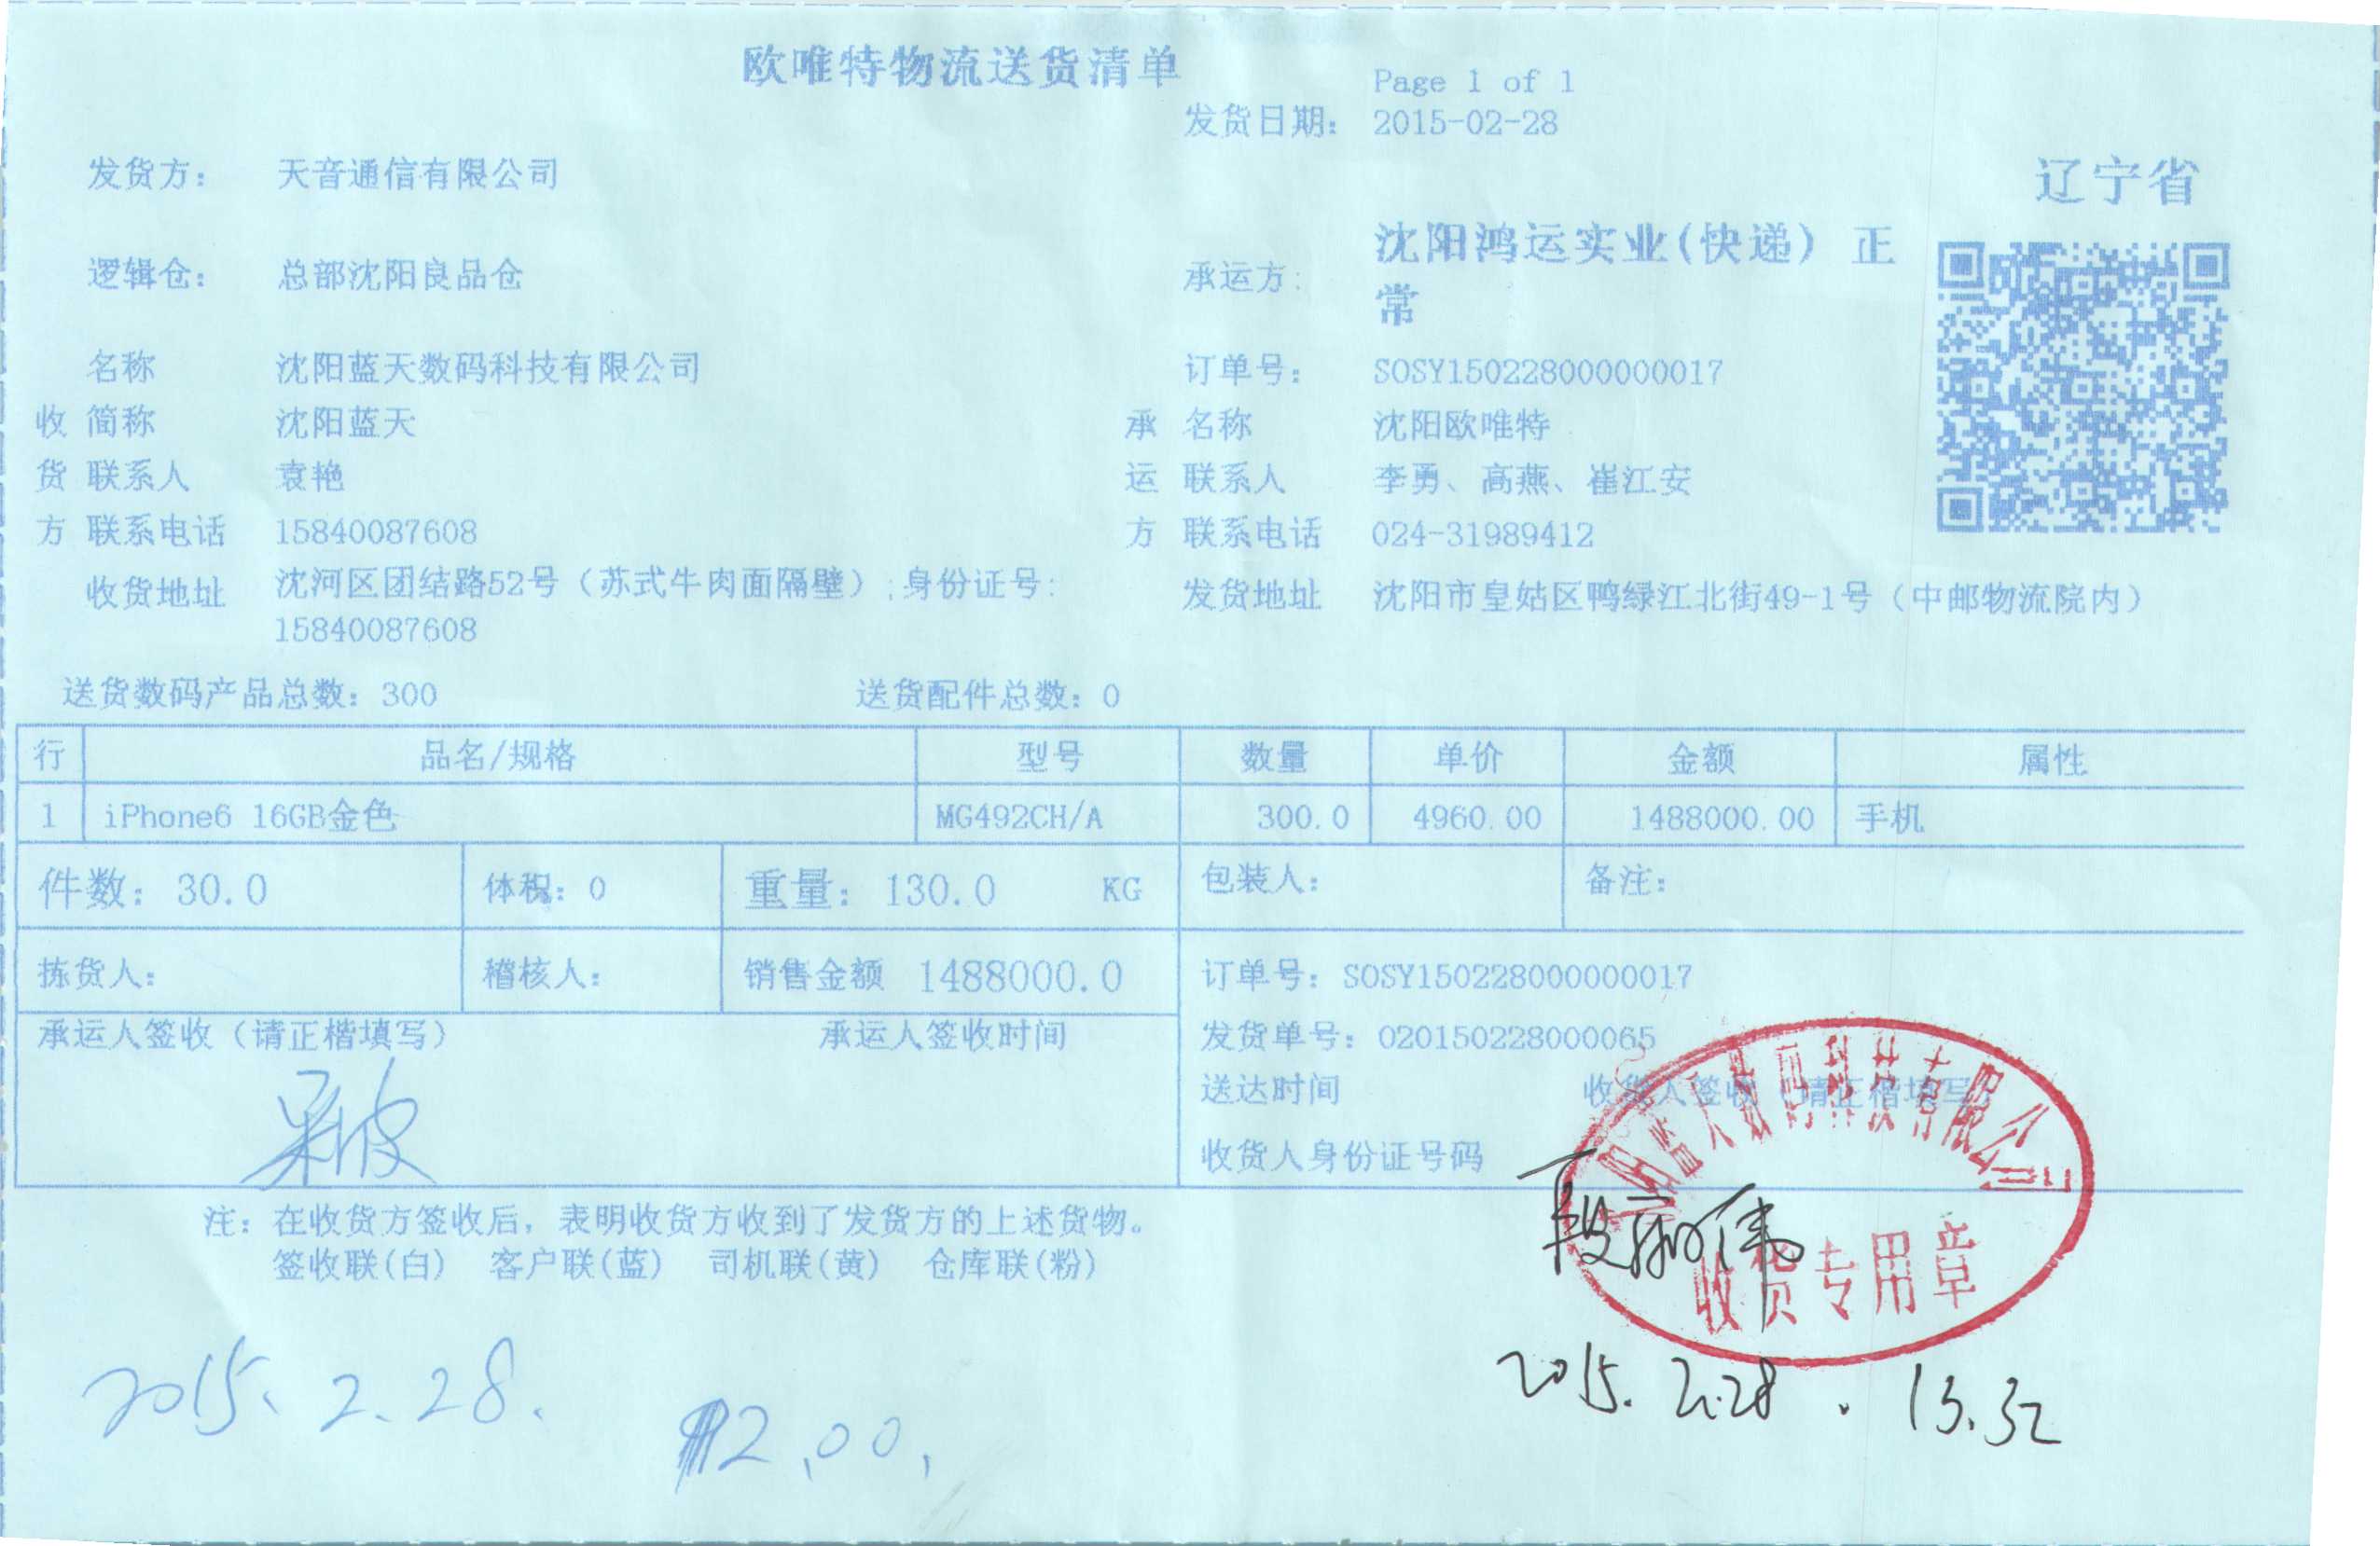 欧唯特物流送货清单
Page 1 of 1
发货日期： 2015-02-28
发货方： 天音通信有限公司
辽宁省
逻辑仓： 总部沈阳良品仓
承运方： 沈阳鸿运实业(快递) 正
常
名称 沈阳蓝天数码科技有限公司
订单号： SOSY150228000000017
收 简称 沈阳蓝天
承 名称 沈阳欧唯特
货 联系人 袁艳
运 联系人 李勇、高燕、崔江安
方 联系电话 15840087608
方 联系电话 024-31989412
收货地址 沈河区团结路52号（苏式牛肉面隔壁）;身份证号:
15840087608
发货地址 沈阳市皇姑区鸭绿江北街49-1号（中邮物流院内）
送货数码产品总数：300 送货配件总数：0
行 品名/规格 型号 数量 单价 金额 属性
1 iPhone6 16GB金色 MG492CH/A 300.0 4960.00 1488000.00 手机
件数： 30.0 体积：0 重量： 130.0 KG 包装人： 备注：
拣货人： 稽核人： 销售金额 1488000.0 订单号：SOSY150228000000017
承运人签收（请正楷填写） 承运人签收时间
发货单号：020150228000065
送达时间 收货人签收（请正楷填写）
收货人身份证号码
阳蓝天数码科技有限公司
收货专用章
注：在收货方签收后，表明收货方收到了发货方的上述货物。
签收联(白) 客户联(蓝) 司机联(黄) 仓库联(粉)
2015.2.28.
12,00,
2015.2.28. 13.32